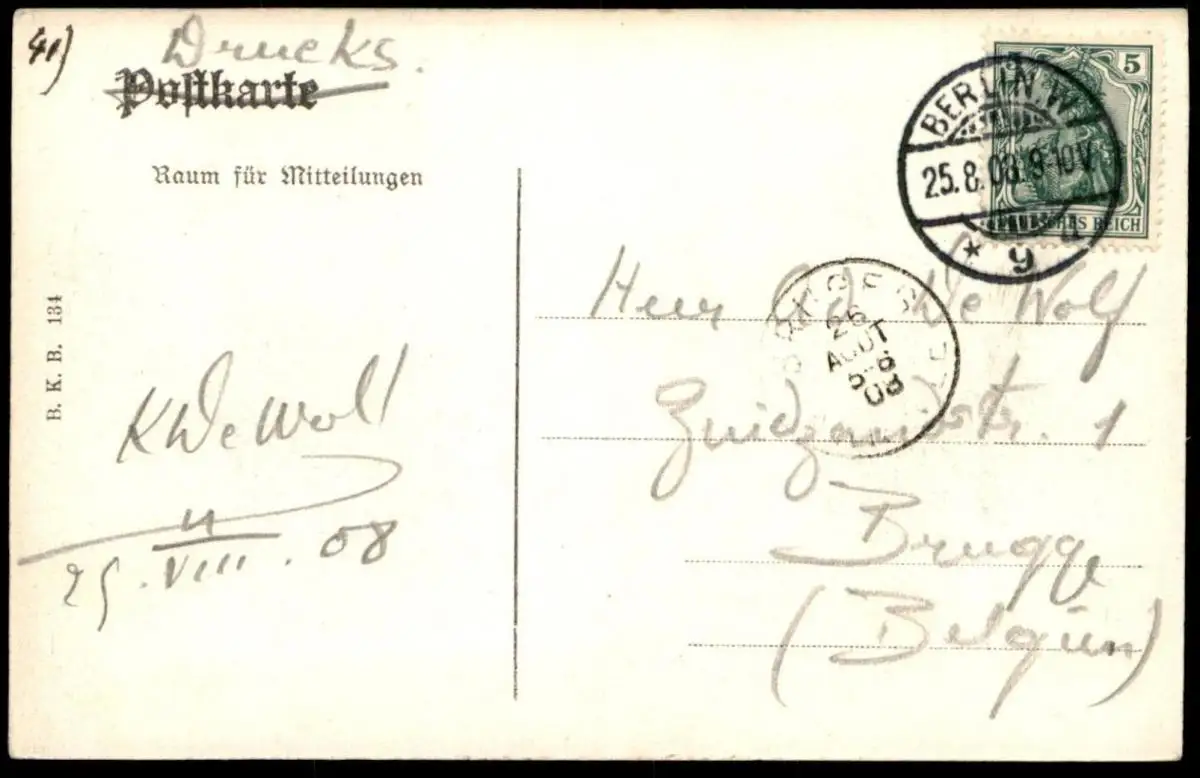 41)
Drucks.
Postkarte
Raum für Mitteilungen
B. K. B. 134
KDeWolf
25. VIII. 08
5
DEUTSCHES REICH
BERLIN. W
25.8.08. 9-10V.
* 9 u
26
AOUT
08
Herr De Wolf
Zuidzandstr. 1
Brugge
(Belgien)